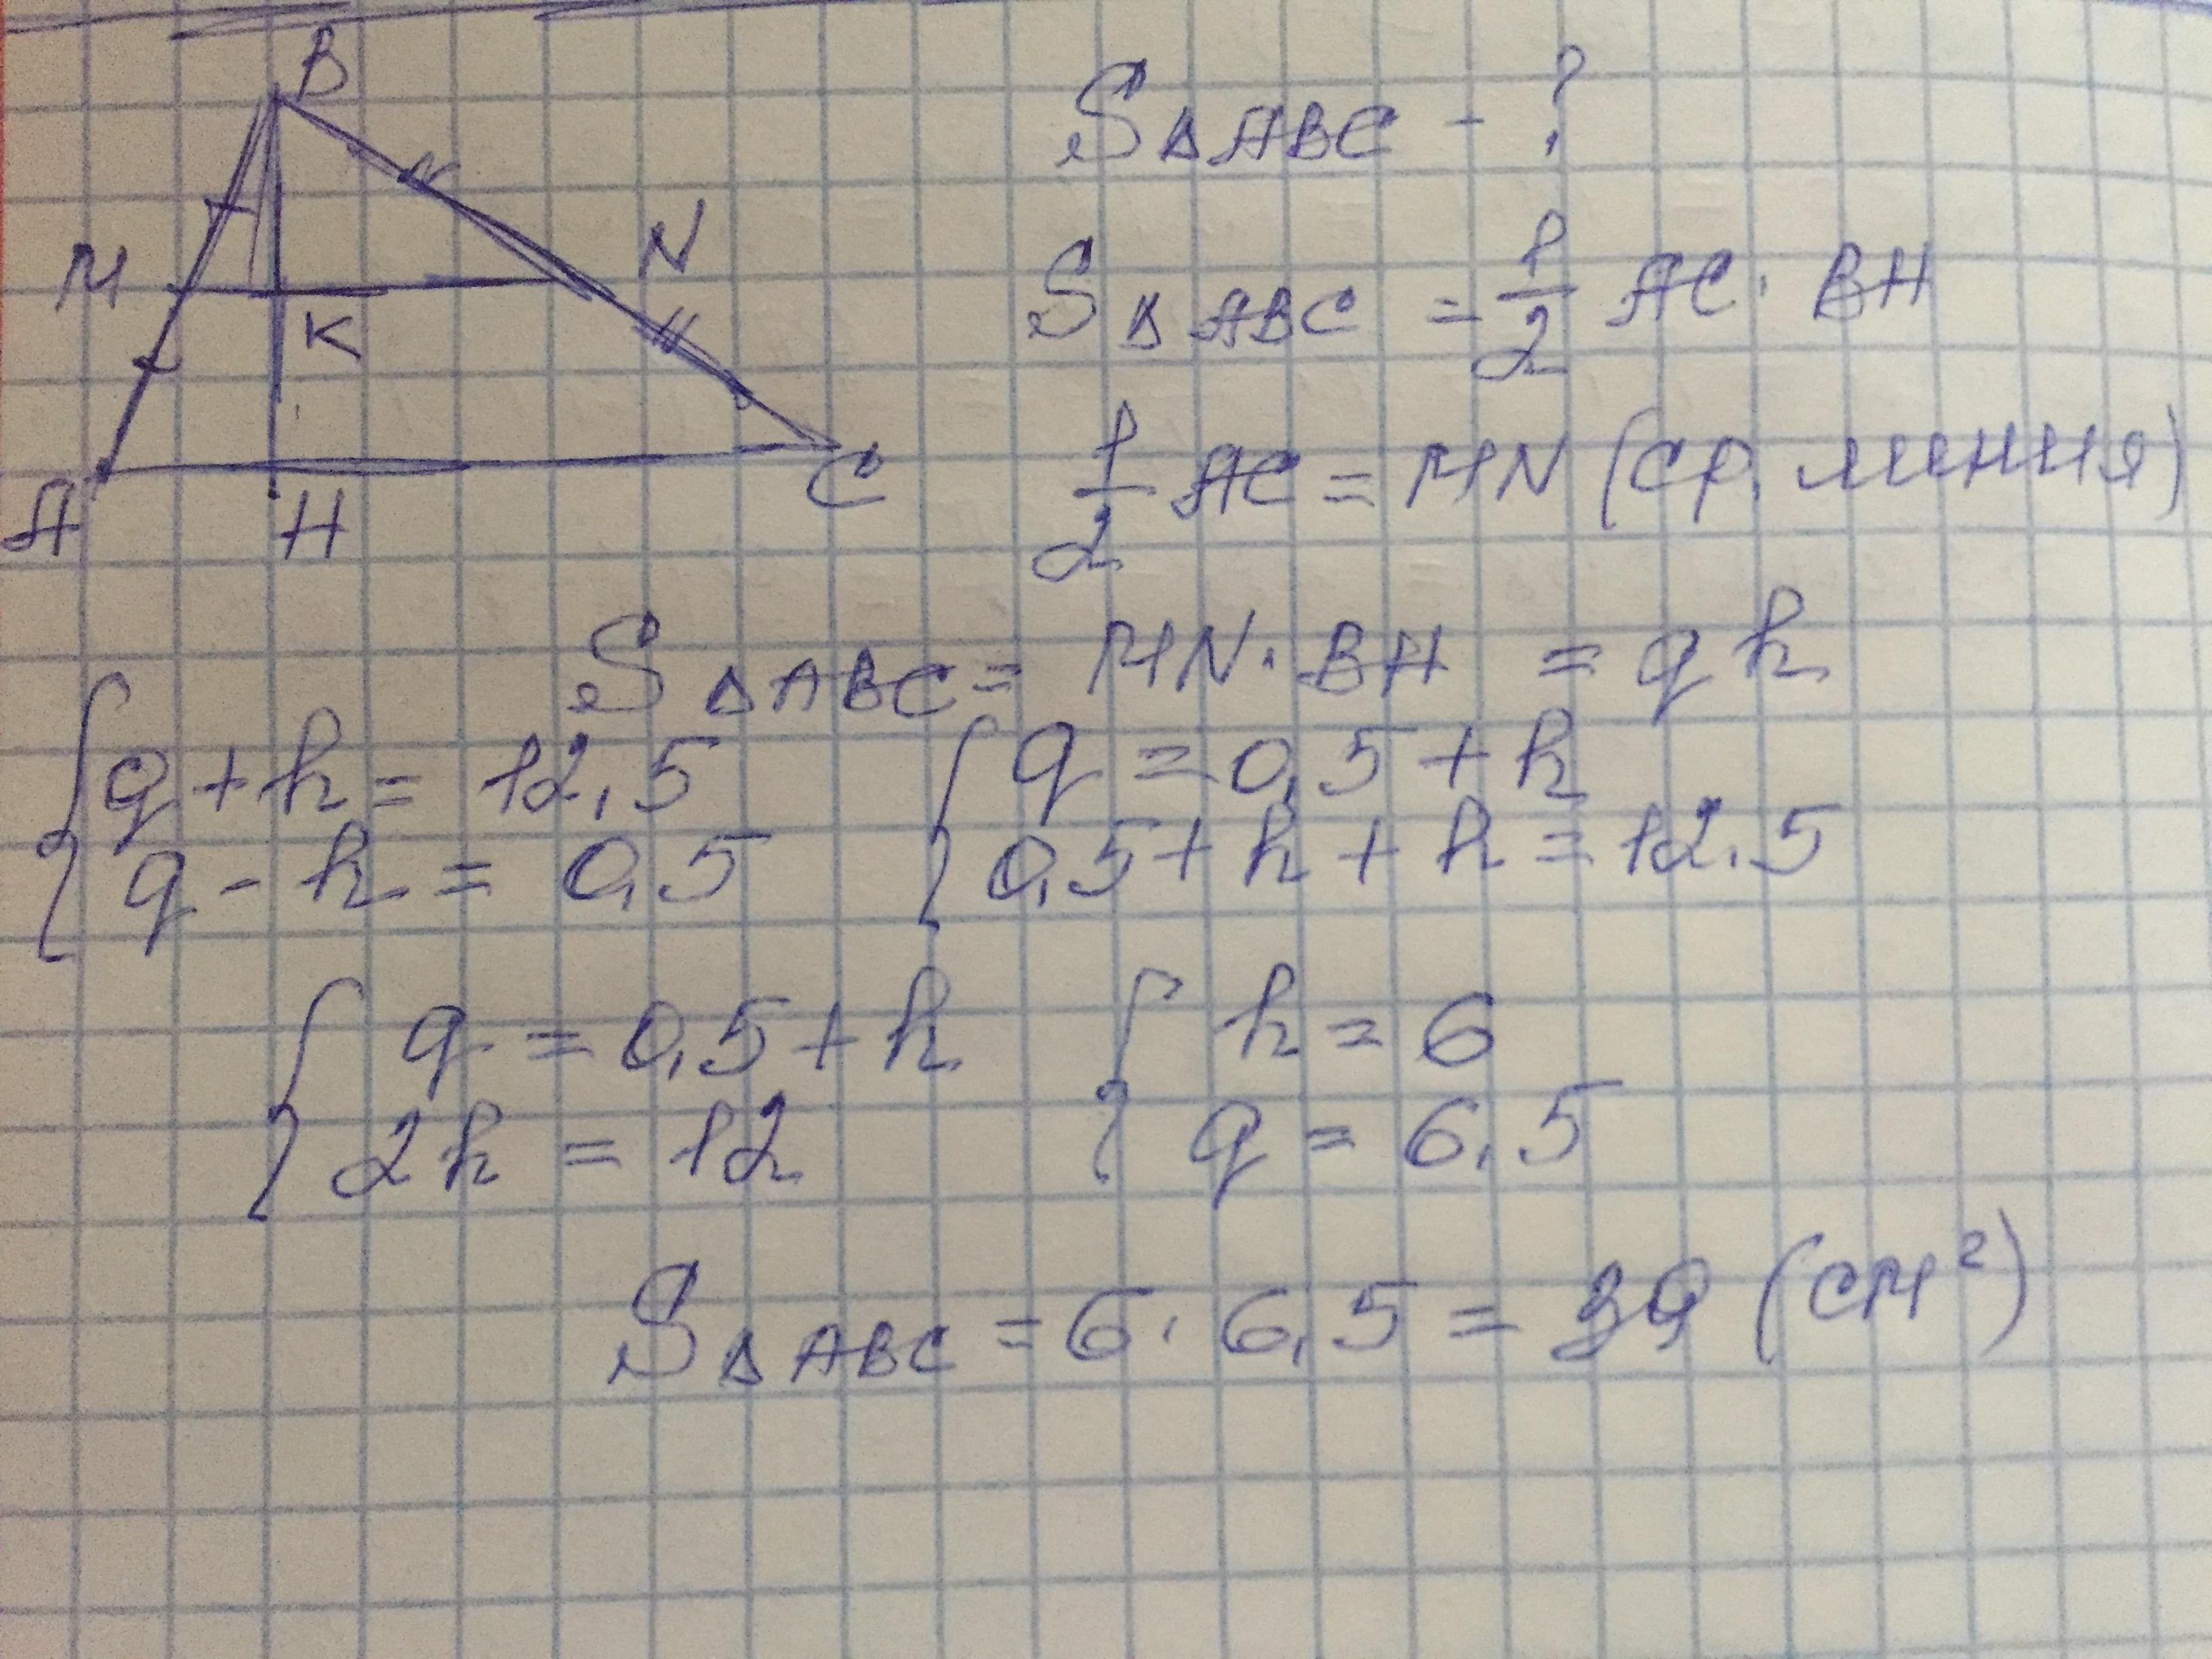 B
M
N
K
A
H
C
S△ABC - ?
S△ABC = 1/2 AC · BH
1/2 AC = MN (ср. линия)
S△ABC = MN · BH = qh
{ q + h = 12,5
q - h = 0,5
{ q = 0,5 + h
0,5 + h + h = 12,5
{ q = 0,5 + h
2h = 12
{ h = 6
q = 6,5
S△ABC = 6 · 6,5 = 39 (см²)